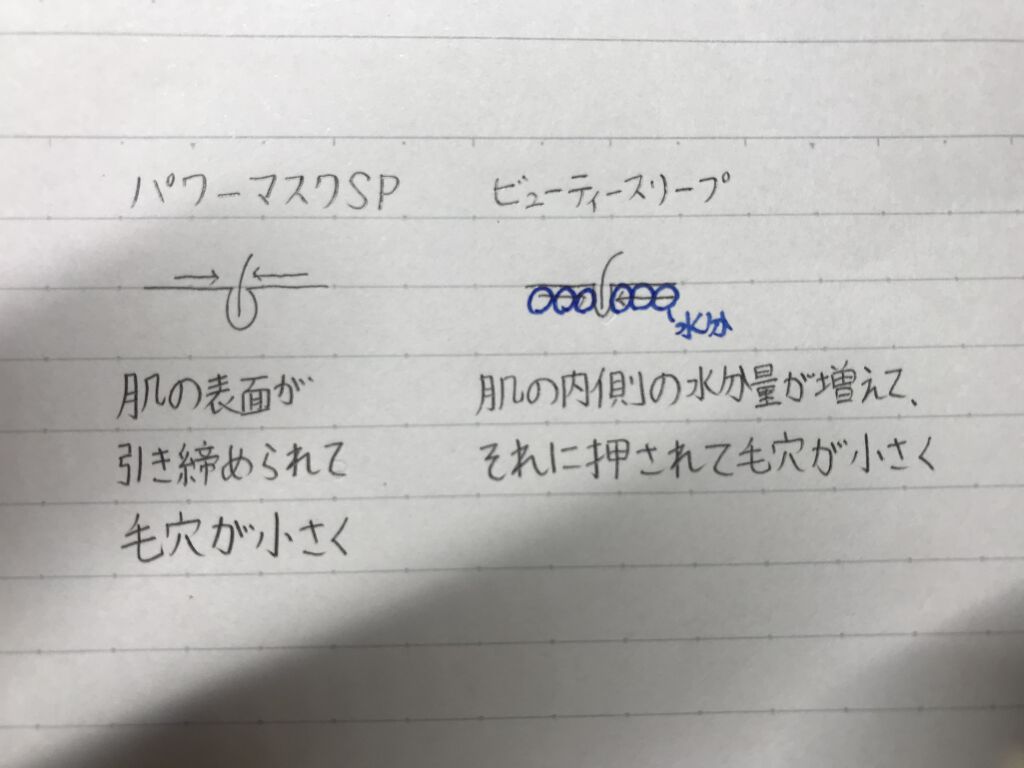 パワーマスクSP
肌の表面が
引き締められて
毛穴が小さく
ビューティースリープ
水分
肌の内側の水分量が増えて、
それに押されて毛穴が小さく